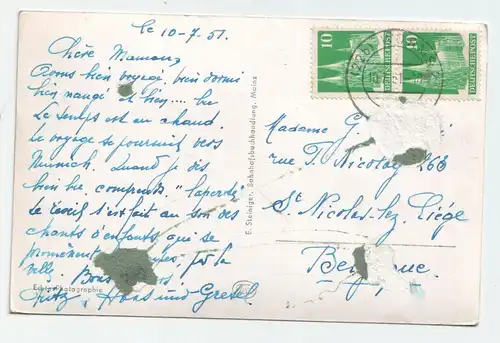 le 10-7-51.
Chère Maman,
Avons bien voyagé, bien dormi
bien mangé et bien.... bu
Le temps est au chaud.
Le voyage se poursuit vers
Munich. Quand je dis
bien bu, comprends "laperdé"
Le réveil s'est fait au son des
chants d'enfants qui se
par la
ville. Bons
Fritz, Hans und Gretel
Echte Fotographie
E. Steiniger, Bahnhofsbuchhandlung, Mainz
10 DEUTSCHE POST
10 DEUTSCHE POST
(22b)
Madame G.
rue T. Nicolay 263
St Nicolas-lez-Liége